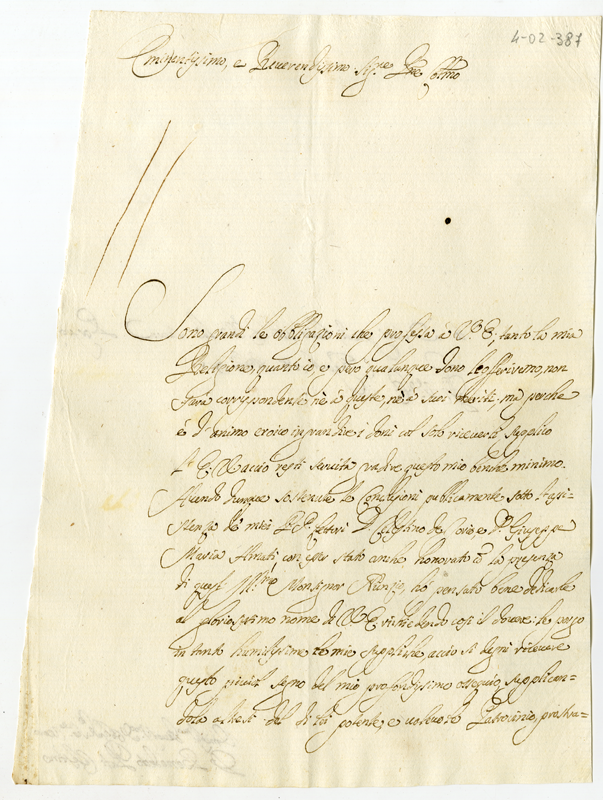 4-02-387
Eminentissimo, e Reverendissimo Sig.re P.ne Col.mo
Sono grandi le obbligazioni che professa à V. E. tanto la mia
Religione, quanto io, e però qualunque dono le offerissimo, non
sarà corrispondente nè à queste, nè à suoi meriti, mà perche
è d'animo eroico ingrandire i doni col solo riceverli supplico
V. E. acciò resti servita gradire questo mio benche minimo.
Havendo dunque sostenute le Conclusioni publicamente sotto l'assi-
stenza de miei P. P. Lettori D. Celestino e D. Giuseppe
Maria con esser stato anche honorato cõ la presenza
di quest' Monsignor Nunzio, hò pensato bene dedicarle
al gloriosissimo nome di V. E. richiedendo così il dovere: le porgo
in tanto humilissime le mie suppliche acciò si degni ricevere
questo picciol segno del mio profondissimo ossequio, supplican-
dola altresì del di lei potente, e valevole Patrocinio, prostra-